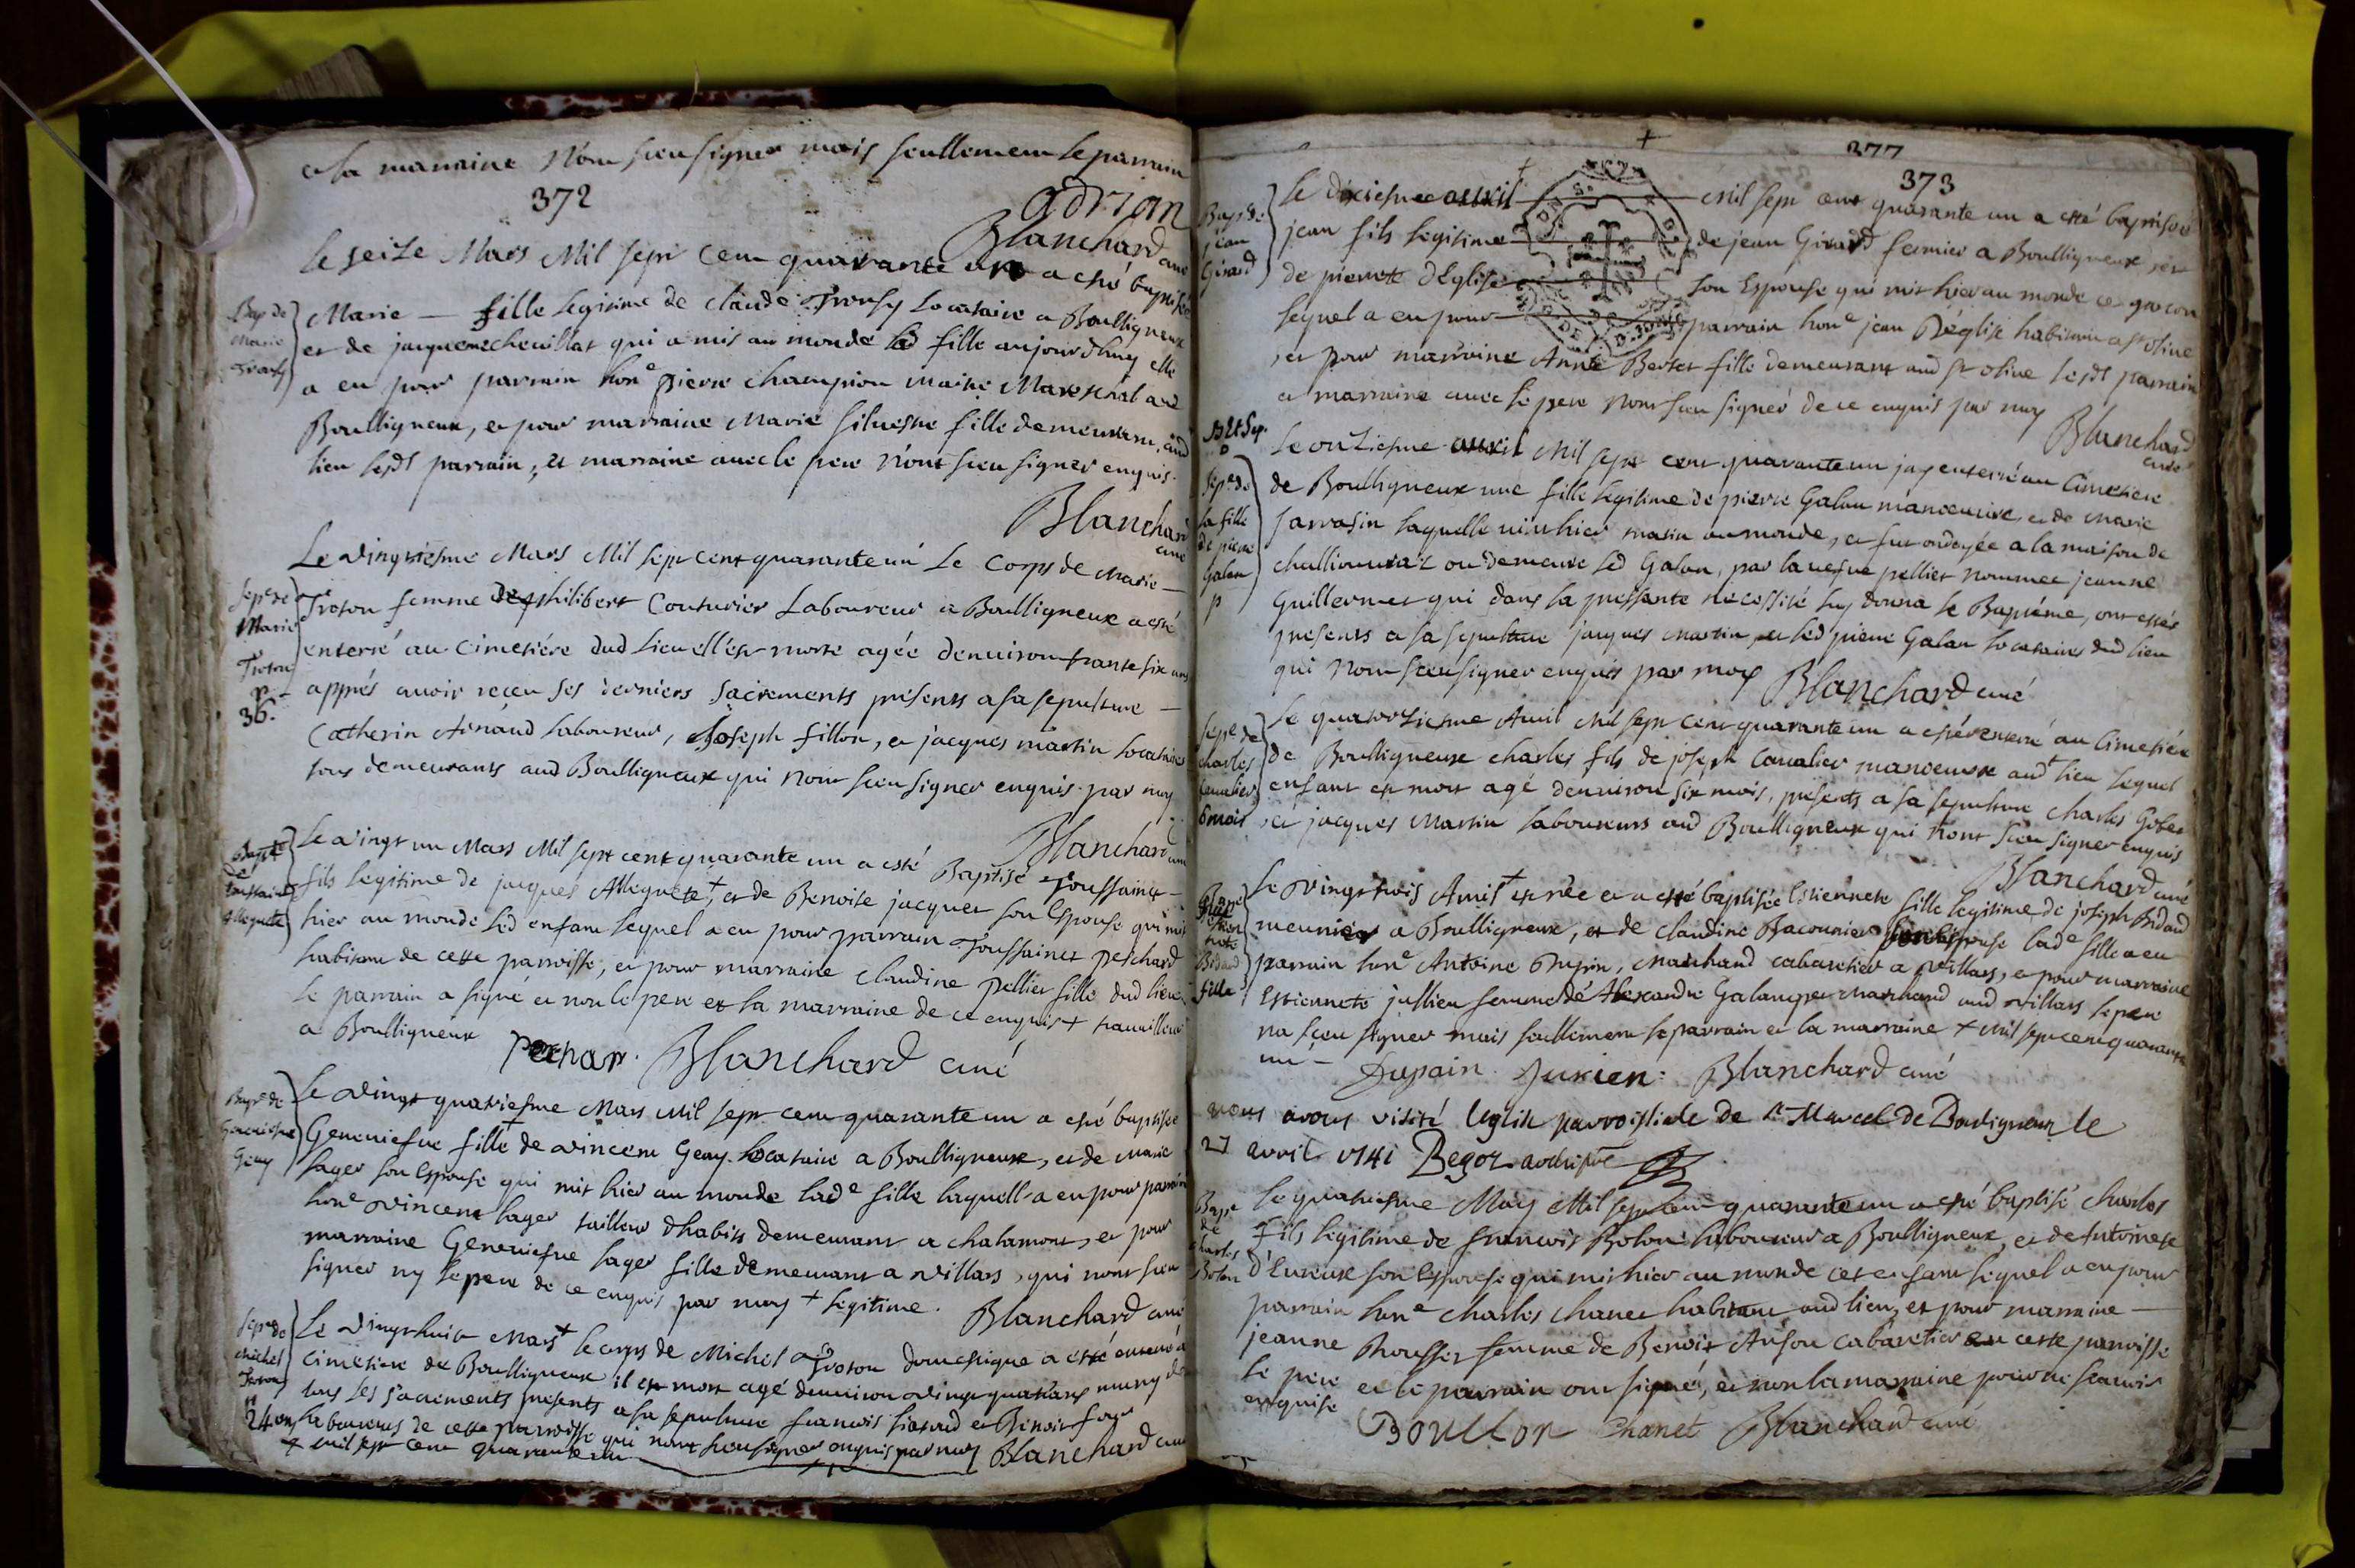 et la marraine n'ont sceu signer mais seullement le parrain
372
adrian
Blanchard curé
Le seize Mars Mil sept cent quarante un a esté baptisée
Bap de Marie
Marie — fille legitime de claude Tronfy Locataire a Boulligneux
et de jacqueme chevillat qui a mis au monde lad fille aujourdhuy elle
a eu pour parrain hone pierre champion maitre Mareschal aud
Boulligneux, et pour marraine Marie silvestre fille demeurant aud
lieu lesdt parrain, et marraine avec le pere n'ont sceu signer enquis.
Blanchard curé
Sepre de Marie Troton p 36.
Le vingtiesme Mars Mil sept cent quarante un Le Corps de Marie —
Troton femme de philibert Couturier Laboureur a Boulligneux a esté
enterré au Cimetiére dud Lieu ell'est morte agée d'environ trante six ans
apprés avoir receu ses derniers Sacrements présents a sa sepulture —
Catherin Arnaud laboureur, Joseph fillon, et jacques martin locataires
tous demeurants aud Boulligneux qui n'ont sceu signer enquis par moy
Blanchard curé
Bapte de toussaint Alleguete
Le vingt un Mars Mil sept cent quarante un a esté Baptisé Toussaint —
fils legitime de jacques Alleguete +, et de Benoite jacquet son Espouse qui mit
hier au monde led enfant lequel a eu pour parrain Toussainct peschard
habitant de cette parroisse, et pour marraine claudine pellier fille dud lieu
le parrain a signé et non le pere et la marraine de ce enquis + travailleur
a Boulligneux
Pechar. Blanchard curé
Bapt de Geneviefve Geay
Le vingt quatriesme Mars Mil sept cent quarante un a esté baptisée
Geneviefve fille + de vincent Geay Locataire a Boulligneux, et de Marie
sager son Espouse qui mit hier au monde lade fille laquell'a eu pour parrain
hone vincent sager tailleur d'habits demeurant a chalamont, et pour
marraine Geneviefve sager fille demeurant a villars, qui n'ont sceu
signer ny le pere de ce enquis par moy + legitime. Blanchard curé
Sepre de Michel Troton p 24 ans
Le vingt huit Mars + le corps de Michel Troton domestique a esté enterré a
cimetiere de Boulligneux il est mort agé d'environ vingt quatr'ans muny de
tous les sacrements présents a sa sepulture francois et Benoit
laboureurs de cette parroisse qui n'ont sceu signer enquis par moy Blanchard curé
+ mil sept cent quarante un
377
373
Bapt de jean Girard
Le dixiesme avril mil sept cent quarante un a esté baptisé
jean fils legitime de jean Girard fermier a Boulligneux, et
de pierrete d'Eglise son Espouse qui mit hier au monde ce garcon
lequel a eu pour parrain hone jean Déglise habitant a st olive
, et pour marraine Anne Bertet fille demeurant aud st olive lesdt parrain
et marraine avec le pere n'ont sceu signer de ce enquis par moy
Blanchard curé
B et Sep.
Sepre de la fille de pierre Galan p
Le onziesme avril Mil sept cent quarante un jay enterré au Cimetiere
de Boulligneux une fille legitime de pierre Galan manoeuvre, et de Marie
sarrasin laquelle vint hier matin au monde, et fut ondoyée a la maison de
challiouvraz ou demeure led Galan, par la vefve pellier nommee jeanne
Guillermet qui dans la pressante necessité luy donna le Baptéme, ont estés
presents a sa sepulture jacques martin, et led pierre Galan locataires dud lieu
qui n'ont sceu signer enquis par moy Blanchard curé
Sepre de charles 6 mois
Le quatorziesme Avril Mil sept cent quarante un a esté enterré au Cimetiere
de Boulligneux charles fils de joseph manoeuvre audt lieu lequel
enfant est mort agé d'environ six mois, présents a sa sepulture charles Gobet
, et jacques Martin laboureurs aud Boulligneux qui n'ont sceu signer enquis
Blanchard curé
Bapt Estiennete Bidaud fille
Le vingt trois Avril + est née et a esté baptisée Estiennete fille legitime de joseph Bidaud
meunier a Boulligneux, et de claudine Bacounier son Espouse lade fille a eu
parrain hone Antoine Dupin, marchand cabaretier a villars, et pour marraine
Estiennete jullien femme de Alexandre Galamper marchand aud villars le pere
na sceu signer mais seullement le parrain et la marraine + Mil sept cent quarante
un —
Dupain. Jurien: Blanchard curé
nous avons visité leglise parroissiale de st Marcel de Bouligneux le
27 avril 1741 Begoz archiptre
Bapt de charles Bolon
Le quatriesme May Mil sept cent quarante un a esté baptisé charles
fils legitime de francois Bolon laboureur a Boulligneux, et de Antoinete
d'Eureux son Espouse qui mit hier au monde cet enfant lequel a eu pour
parrain hone charles chanet habitant aud lieu, et pour marraine —
jeanne Rousset femme de Benoit Anson cabaretier en cette parroisse
le pere et le parrain ont signé, et non la marraine pour ne scavoir
enquise
Boullon Chanet Blanchard curé